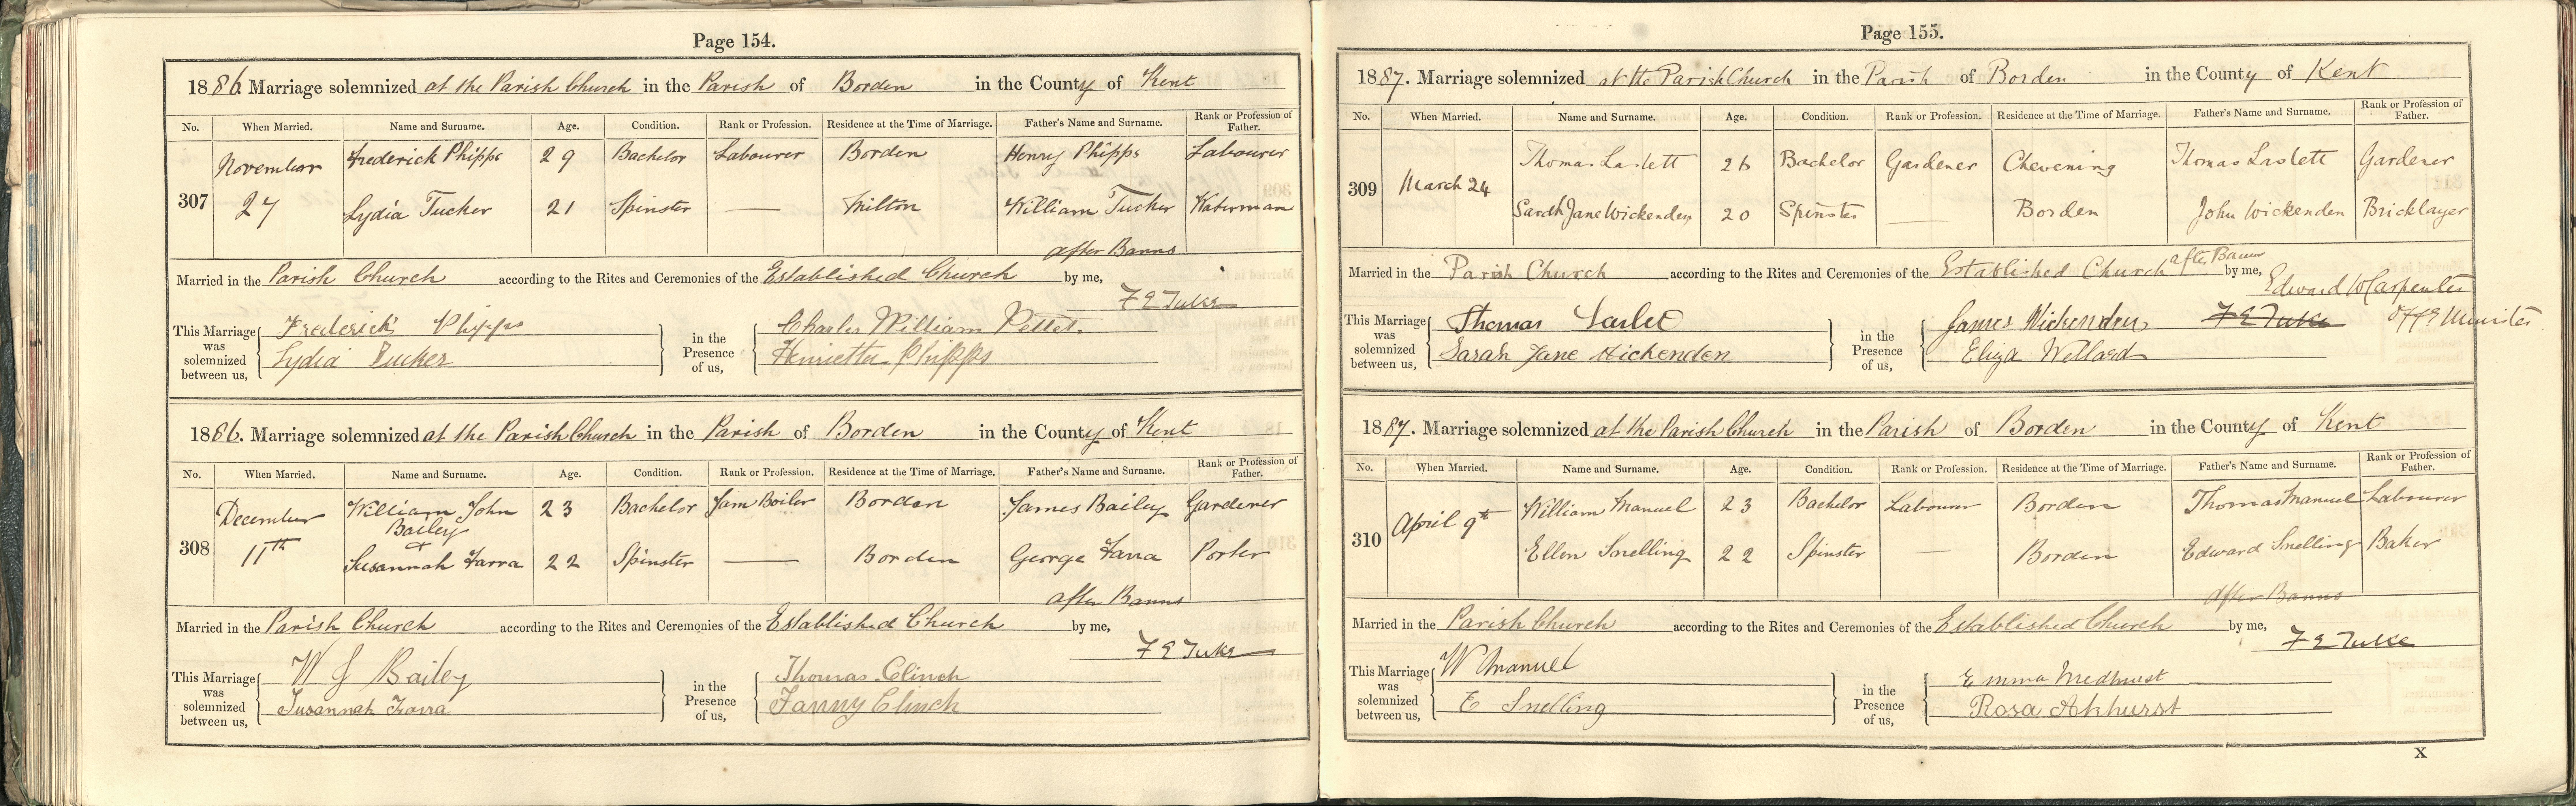 Page 154.
1886. Marriage solemnized at the Parish Church in the Parish of Borden in the County of Kent
No. When Married. Name and Surname. Age. Condition. Rank or Profession. Residence at the Time of Marriage. Father's Name and Surname. Rank or Profession of Father.
November Frederick Phipps 29 Bachelor Labourer Borden Henry Phipps Labourer
307 27 Lydia Tucker 21 Spinster — Milton William Tucker Waterman
after Banns
Married in the Parish Church according to the Rites and Ceremonies of the Established Church by me,
F E Tuke
This Marriage was solemnized between us, Frederick Phipps in the Presence of us, Charles William Pettet.
Lydia Tucker Henrietta Phipps
1886. Marriage solemnized at the Parish Church in the Parish of Borden in the County of Kent
No. When Married. Name and Surname. Age. Condition. Rank or Profession. Residence at the Time of Marriage. Father's Name and Surname. Rank or Profession of Father.
December William John Bailey 23 Bachelor Jam Boiler Borden James Bailey Gardener
+
308 11th Susannah Farra 22 Spinster — Borden George Farra Porter
after Banns
Married in the Parish Church according to the Rites and Ceremonies of the Established Church by me,
F E Tuke
This Marriage was solemnized between us, W J Bailey in the Presence of us, Thomas Clinch
Susannah Farra Fanny Clinch
Page 155.
1887. Marriage solemnized at the Parish Church in the Parish of Borden in the County of Kent
No. When Married. Name and Surname. Age. Condition. Rank or Profession. Residence at the Time of Marriage. Father's Name and Surname. Rank or Profession of Father.
Thomas Laslett 26 Bachelor Gardener Chevening Thomas Laslett Gardener
309 March 24
Sarah Jane Wickenden 20 Spinster — Borden John Wickenden Bricklayer
Married in the Parish Church according to the Rites and Ceremonies of the Established Church after Banns by me,
Edward W Carpenter
This Marriage was solemnized between us, Thomas Laslet in the Presence of us, James Wickenden F E Tuke Offg Minister
Sarah Jane Wickenden Eliza Wellard
1887. Marriage solemnized at the Parish Church in the Parish of Borden in the County of Kent
No. When Married. Name and Surname. Age. Condition. Rank or Profession. Residence at the Time of Marriage. Father's Name and Surname. Rank or Profession of Father.
William Manuel 23 Bachelor Labourer Borden Thomas Manuel Labourer
310 April 9th
Ellen Snelling 22 Spinster — Borden Edward Snelling Baker
after Banns
Married in the Parish Church according to the Rites and Ceremonies of the Established Church by me,
F E Tuke
This Marriage was solemnized between us, W Manuel in the Presence of us, Emma Medhurst
E Snelling Rosa Akhurst
X